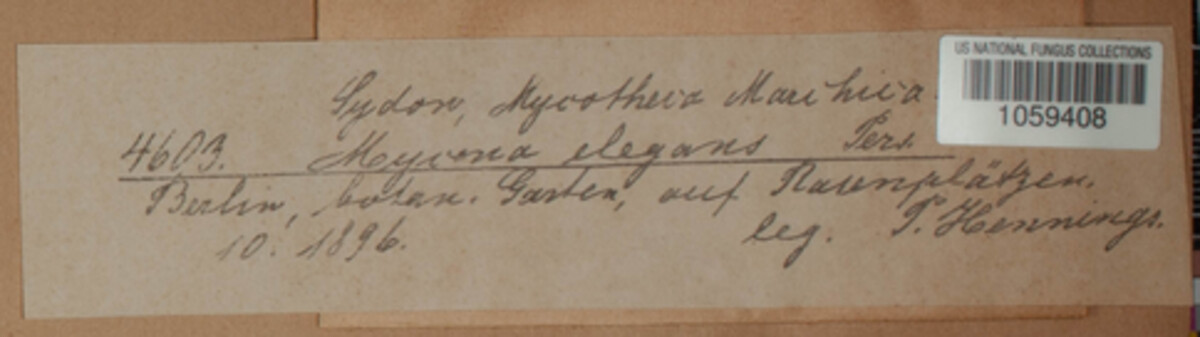 US NATIONAL FUNGUS COLLECTIONS
1059408
Sydow, Mycotheca Marchica.
4603. Mycena elegans Pers.
Berlin, botan. Garten, auf Rasenplätzen.
10. 1896. leg. P. Hennings.